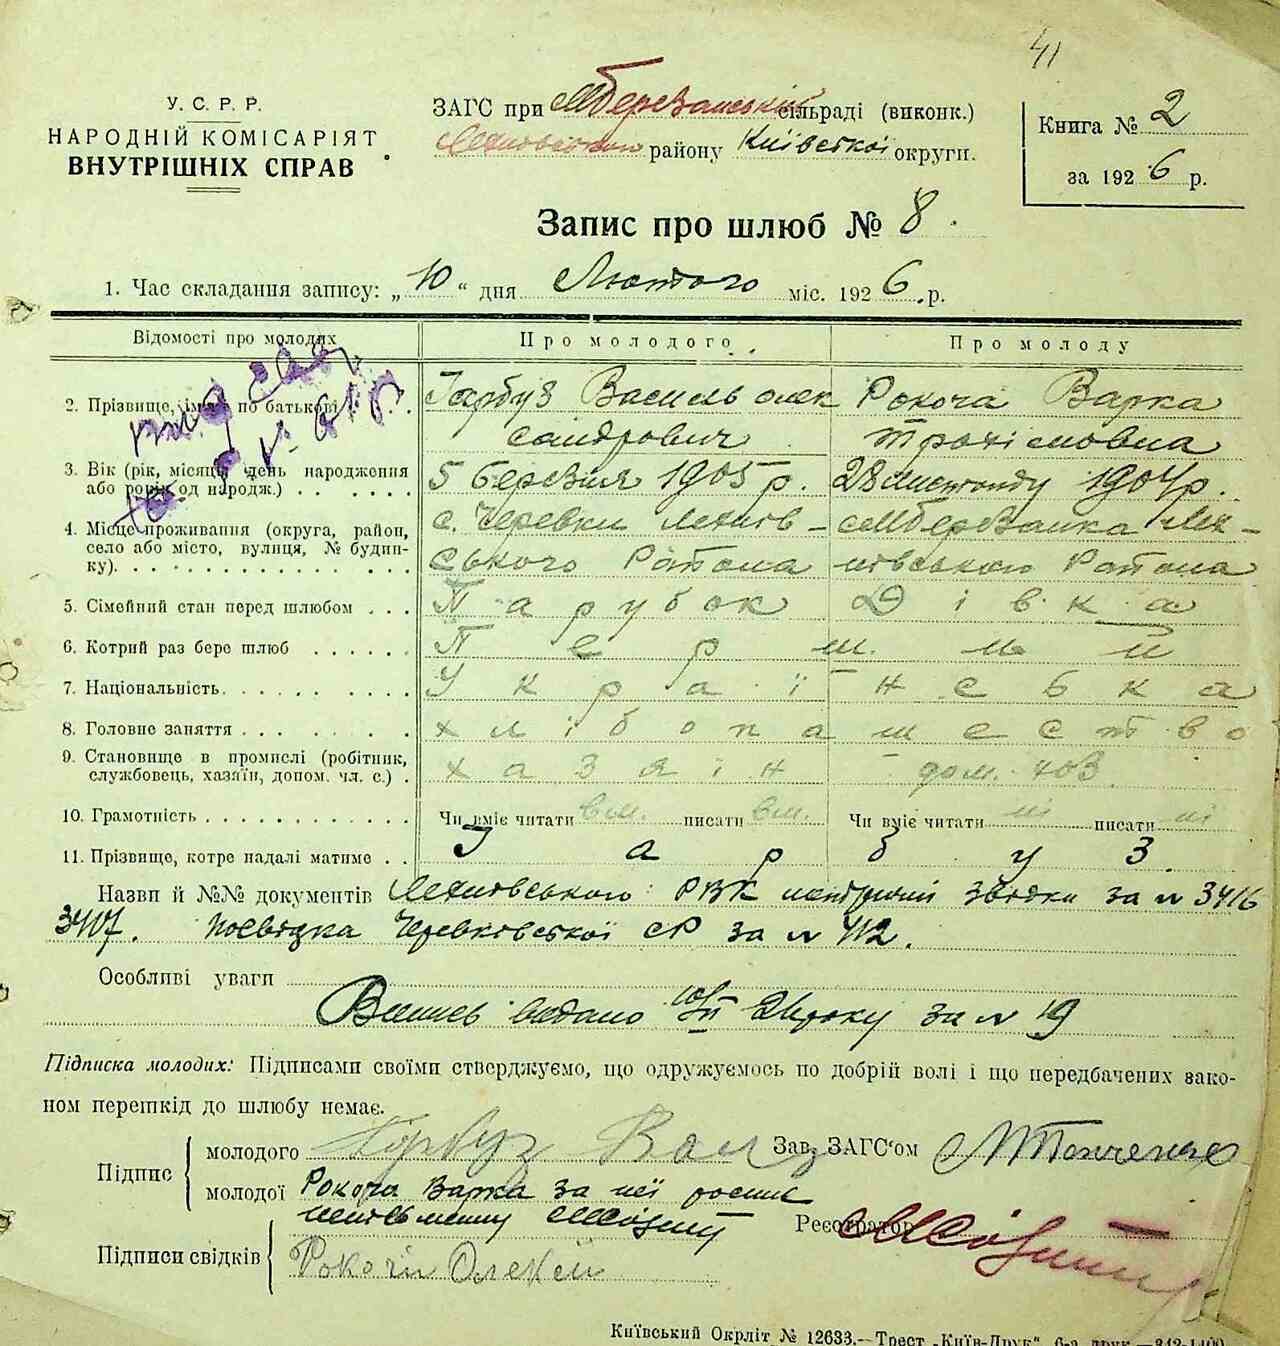 41
У. С. Р. Р.
НАРОДНІЙ КОМІСАРІЯТ
ВНУТРІШНІХ СПРАВ
ЗАГС при МБерезанській сільраді (виконк.)
району Київської округи.
Книга № 2
за 1926 р.
Запис про шлюб № 8.
1. Час складання запису: „10“ дня Лютого міс. 1926 р.
Відомості про молодих
Про молодого
Про молоду
2. Прізвище, ім'я, по батькові
Гарбуз Василь Олек
сандрович
Рокоча Варка
Трохімовна
3. Вік (рік, місяць, день народження
або років од народж.)
5 березіля 1905 р.
28 листопаду 1904 р.
4. Місце проживання (округа, район,
село або місто, вулиця, № будин-
ку)
с. Черевки Лехнів-
ського Району
с МБерезанка Лех-
нівського Району
5. Сімейний стан перед шлюбом
Парубок
Дівка
6. Котрий раз бере шлюб
Перший
7. Національність
Українська
8. Головне заняття
хлібопашество
9. Становище в промислі (робітник,
службовець, хазяїн, допом. чл. с.)
хазяїн
дом. хоз
10. Грамотність
Чи вміє читати вм. писати вм.
Чи вміє читати ні писати ні
11. Прізвище, котре надалі матиме
Гарбуз
Назви й №№ документів Лехнівського РВК метричні звідки за № 3416
3407. Посвідка Черевківської СР за № 412.
Особливі уваги
Випис видано 10/II 26 року за № 19
Підписка молодих: Підписами своїми стверджуємо, що одружуємось по добрій волі і що передбачених зако-
ном перешкід до шлюбу немає.
Підпис
молодого Гарбуз Вас
молодої Рокоча Варка за неї роспис
Зав. ЗАГС'ом
Реєстратор
Підписи свідків
Рокоча Олексій
Київський Окрліт № 12633.—Трест „Київ-Друк“, 6-а друк.